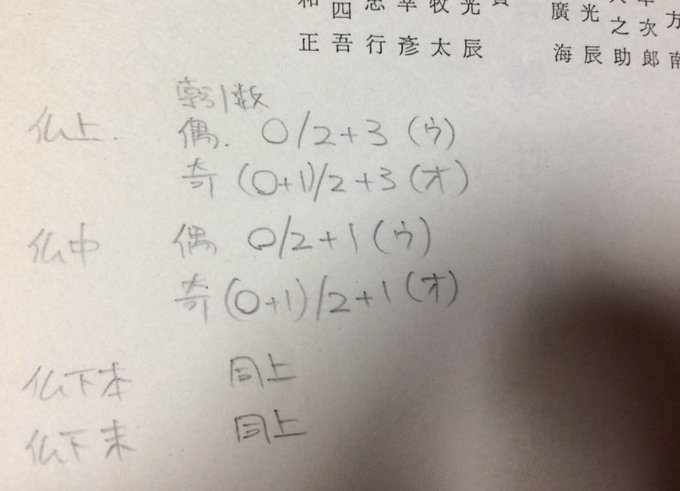 和四忠幸牧光
正吾行彥太辰
廣光之次方
海辰助郎南
索引数
仏上. 偶. 0/2+3(ウ)
奇(0+1)/2+3(オ)
仏中 偶 0/2+1(ウ)
奇(0+1)/2+1(オ)
仏下本 同上
仏下末 同上